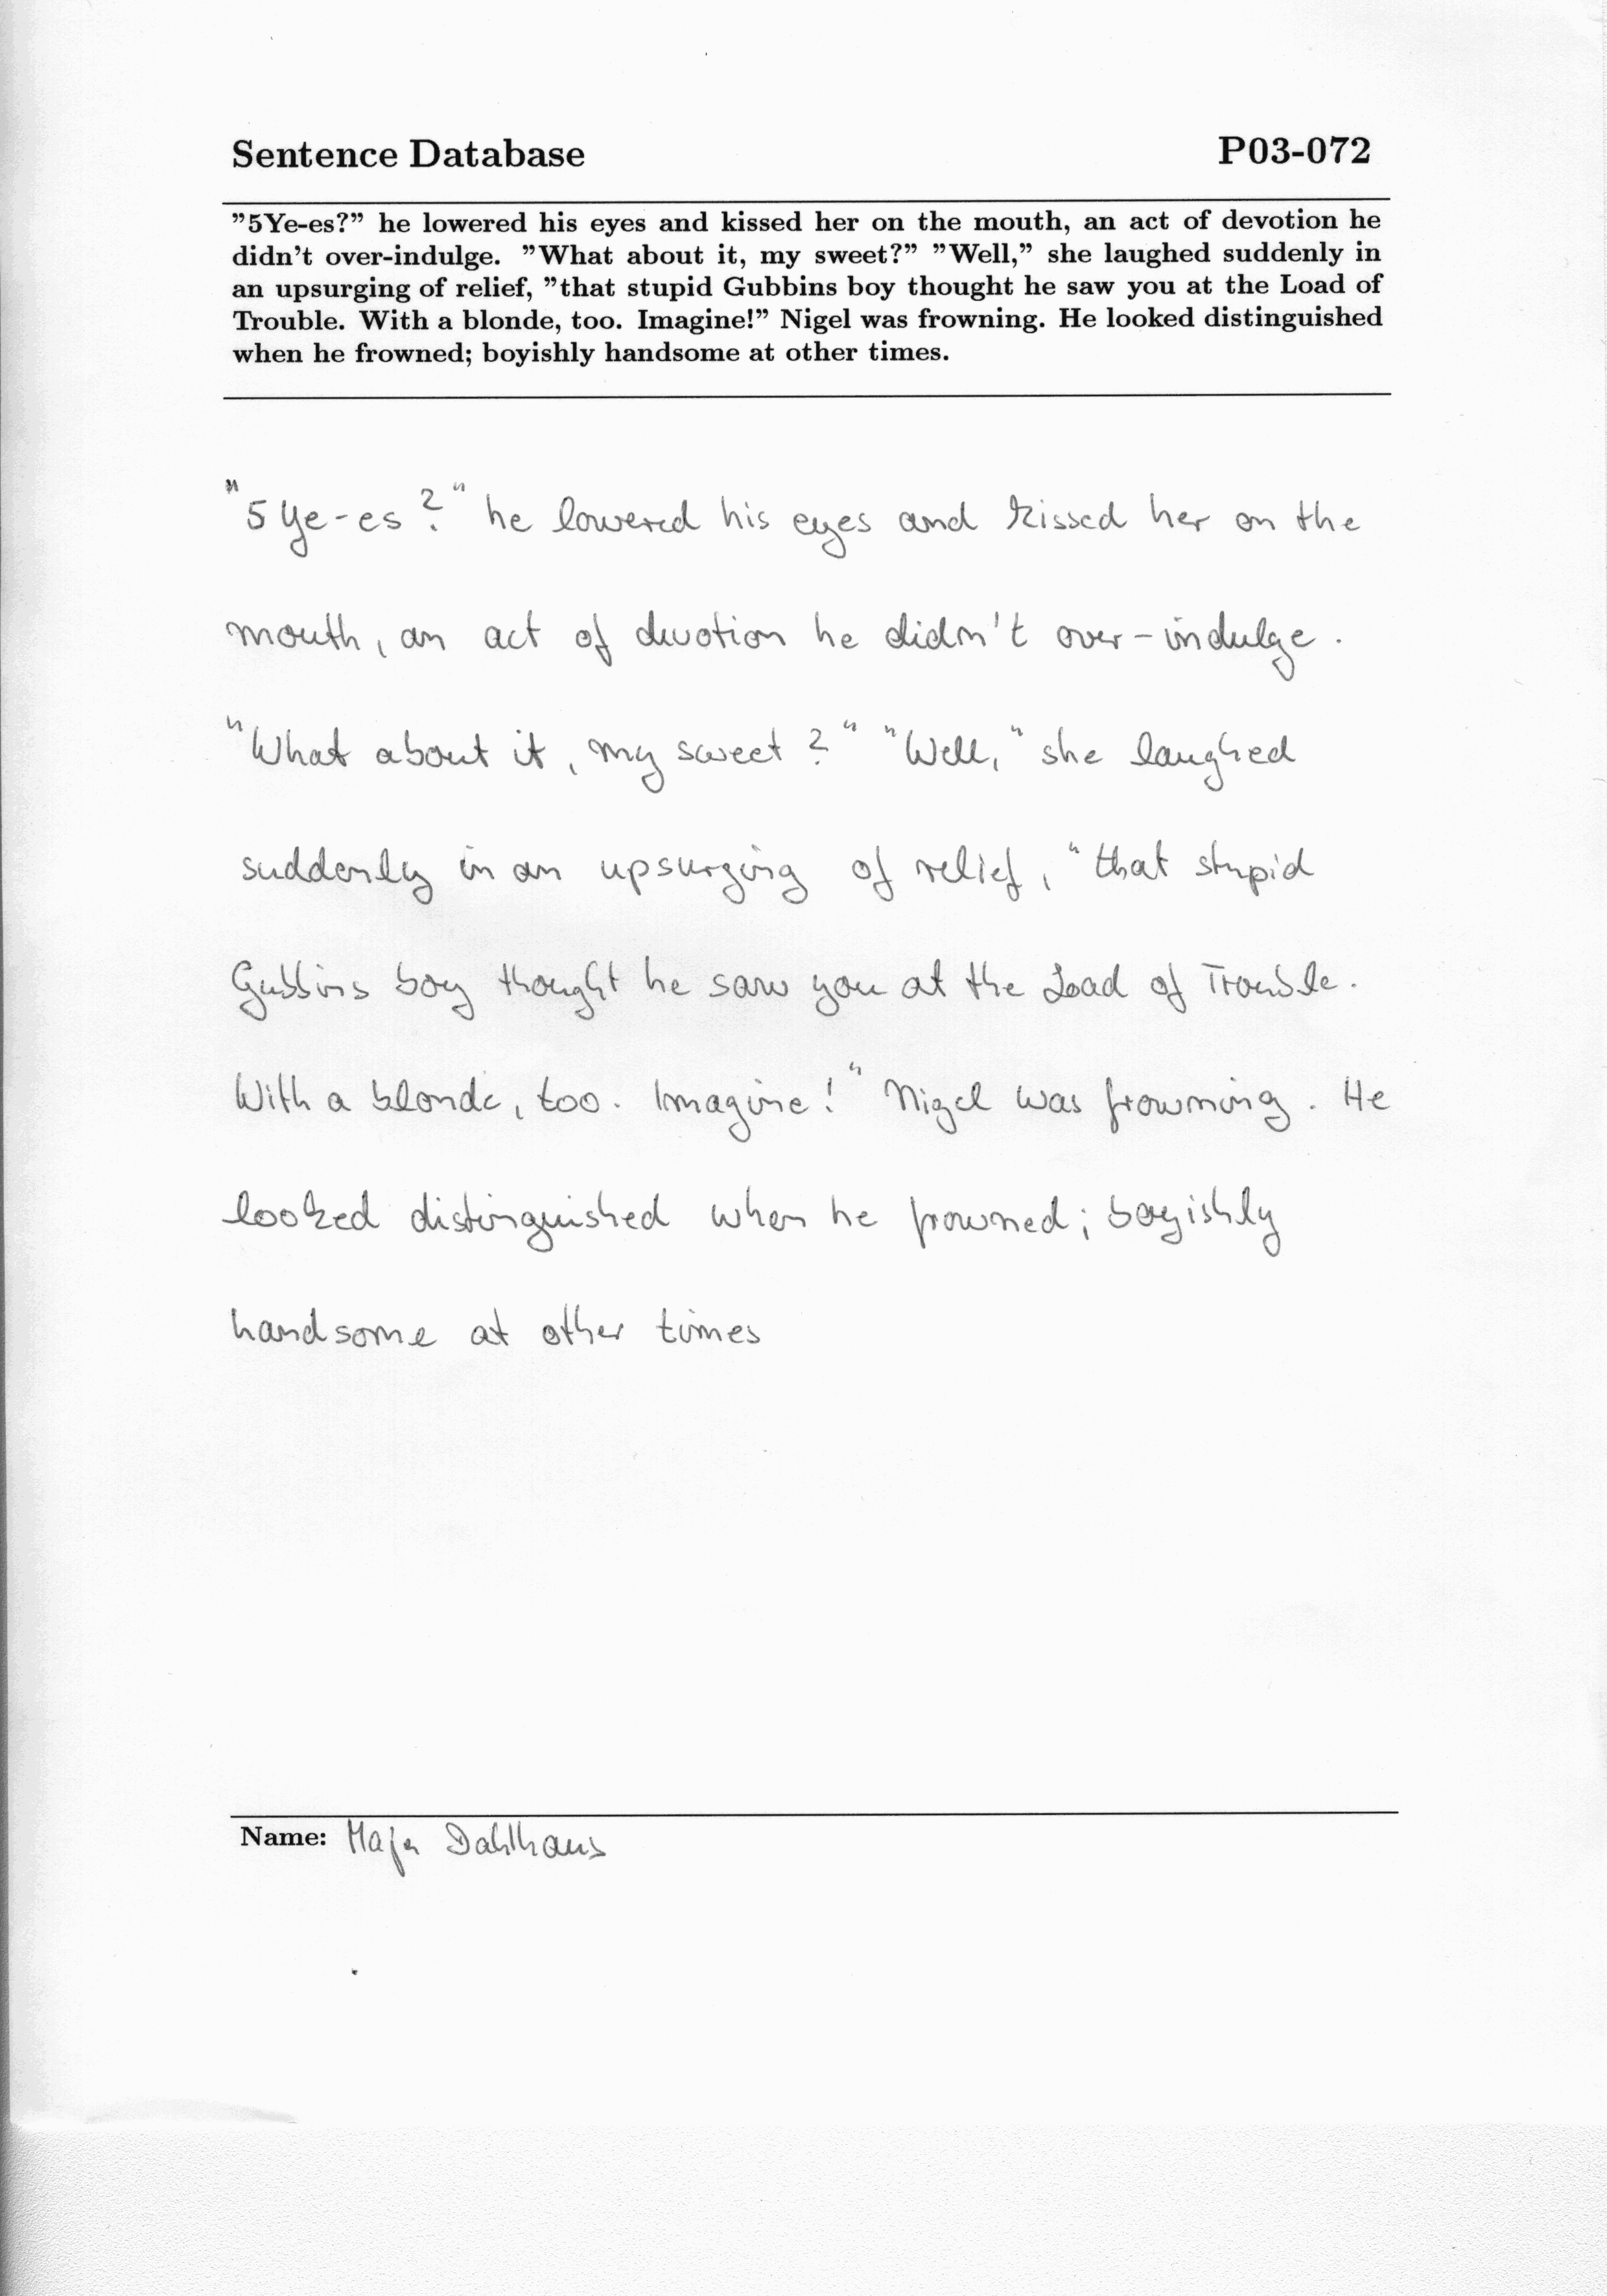 Sentence Database P03-072
"5Ye-es?" he lowered his eyes and kissed her on the mouth, an act of devotion he
didn't over-indulge. "What about it, my sweet?" "Well," she laughed suddenly in
an upsurging of relief, "that stupid Gubbins boy thought he saw you at the Load of
Trouble. With a blonde, too. Imagine!" Nigel was frowning. He looked distinguished
when he frowned; boyishly handsome at other times.
"5Ye-es?" he lowered his eyes and kissed her on the
mouth, an act of devotion he didn't over-indulge.
"What about it, my sweet?" "Well," she laughed
suddenly in an upsurging of relief, "that stupid
Gubbins boy thought he saw you at the Load of Trouble.
With a blonde, too. Imagine!" Nigel was frowning. He
looked distinguished when he frowned; boyishly
handsome at other times
Name: Maja Dahlhaus